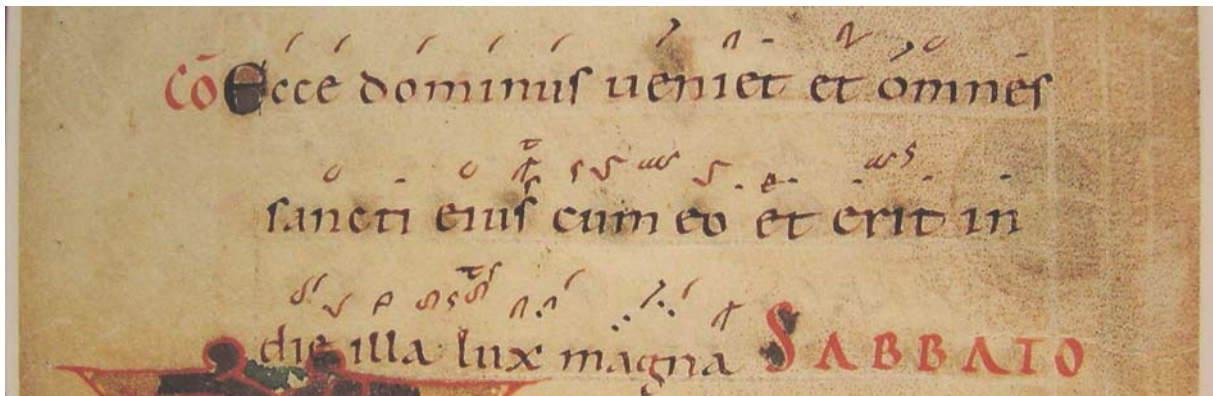 CŌ Ecce dominus ueniet et omnes
sancti eius cum eo et erit in
die illa lux magna SABBATO